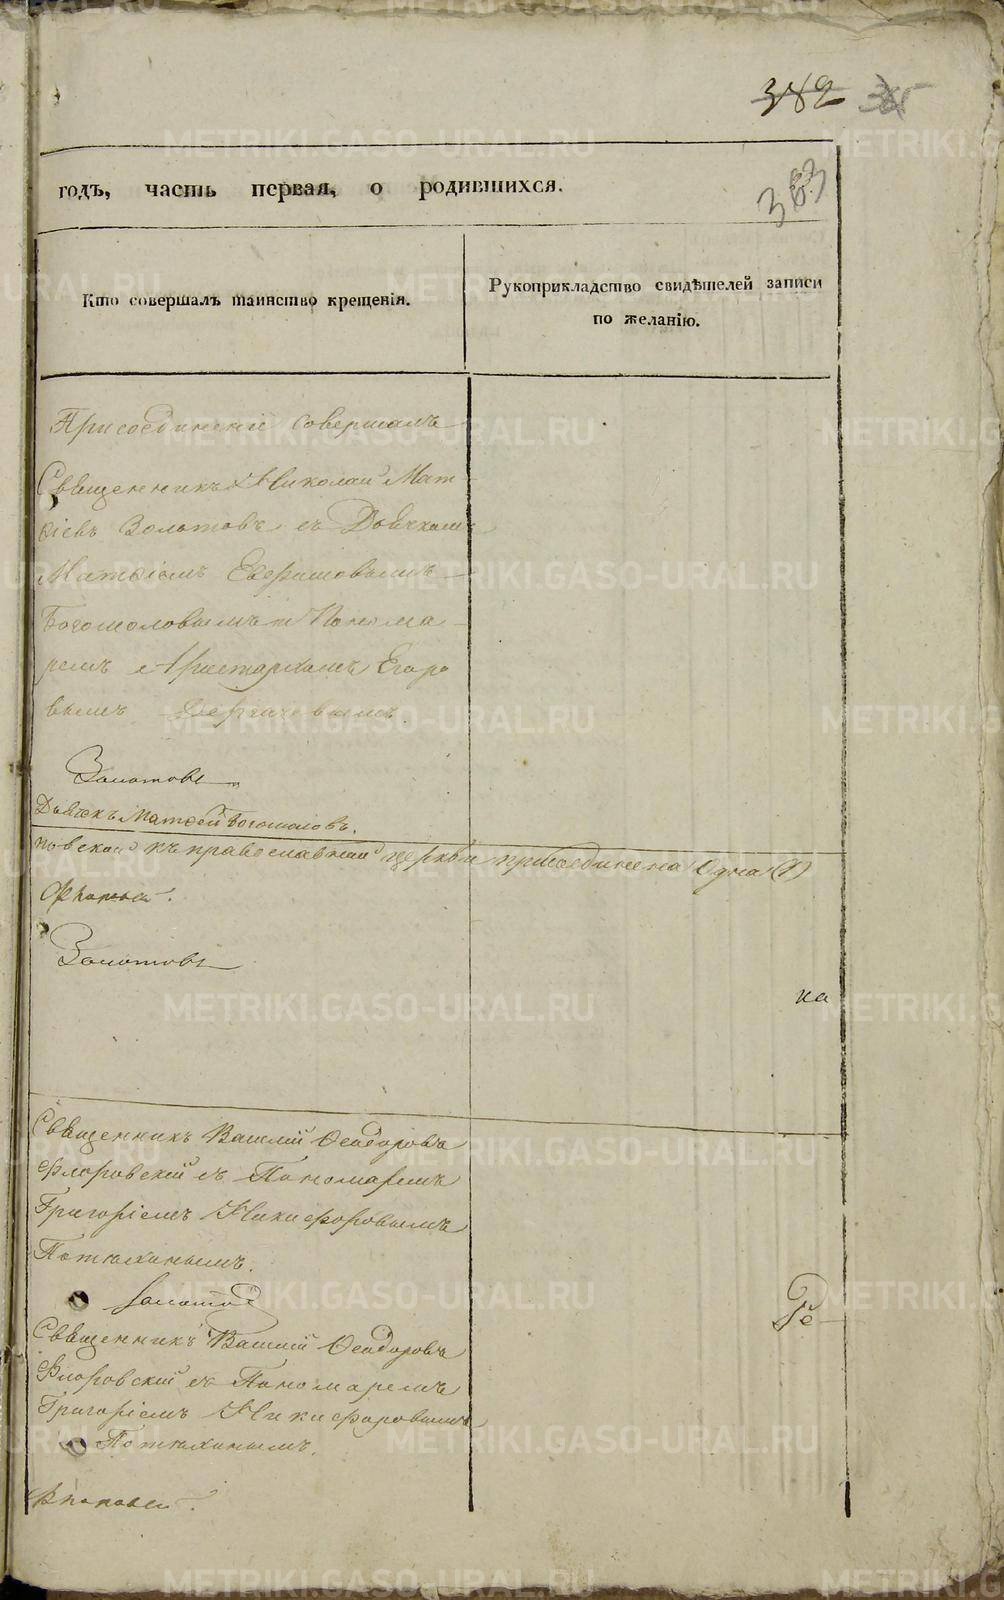 382
383
годъ, часть первая, о родившихся.
Кто совершалъ таинство крещенія.
Рукоприкладство свидѣтелей записи
по желанію.
Присоединеніе совершалъ
Священникъ Николай Мат
ѳіевъ Золотовъ съ Дьячкомъ
Матѳіемъ
Богомоловымъ и Понома
ремъ Аристархомъ Егоро
вымъ
Золотовъ
Дьячекъ Матѳей Богомоловъ.
къ православной церкви присоединена одна (1)
Золотовъ
на
Священникъ Василій Ѳеодоровъ
Флоровскій съ Пономаремъ
Григоріемъ Никифоровымъ
Потѣхинымъ.
Золотов
Священникъ Василій Ѳеодоровъ
Флоровскій съ Пономаремъ
Григоріемъ Никифоровымъ
Потѣхинымъ.
METRIKI.GASO-URAL.RU